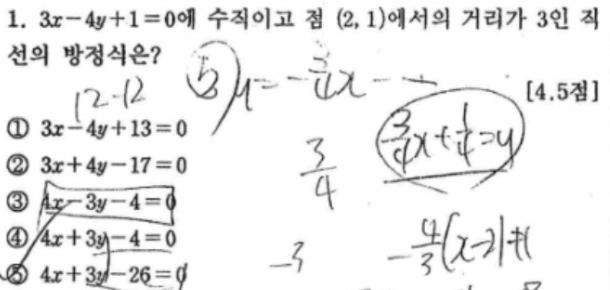 1. 3x-4y+1=0에 수직이고 점 (2, 1)에서의 거리가 3인 직
선의 방정식은?
[4.5점]
12-12
① 3x-4y+13=0
② 3x+4y-17=0
③ 4x-3y-4=0
④ 4x+3y-4=0
⑤ 4x+3y-26=0
3/4
3/4x+1/4=y
-3
-4/3(x-2)+1